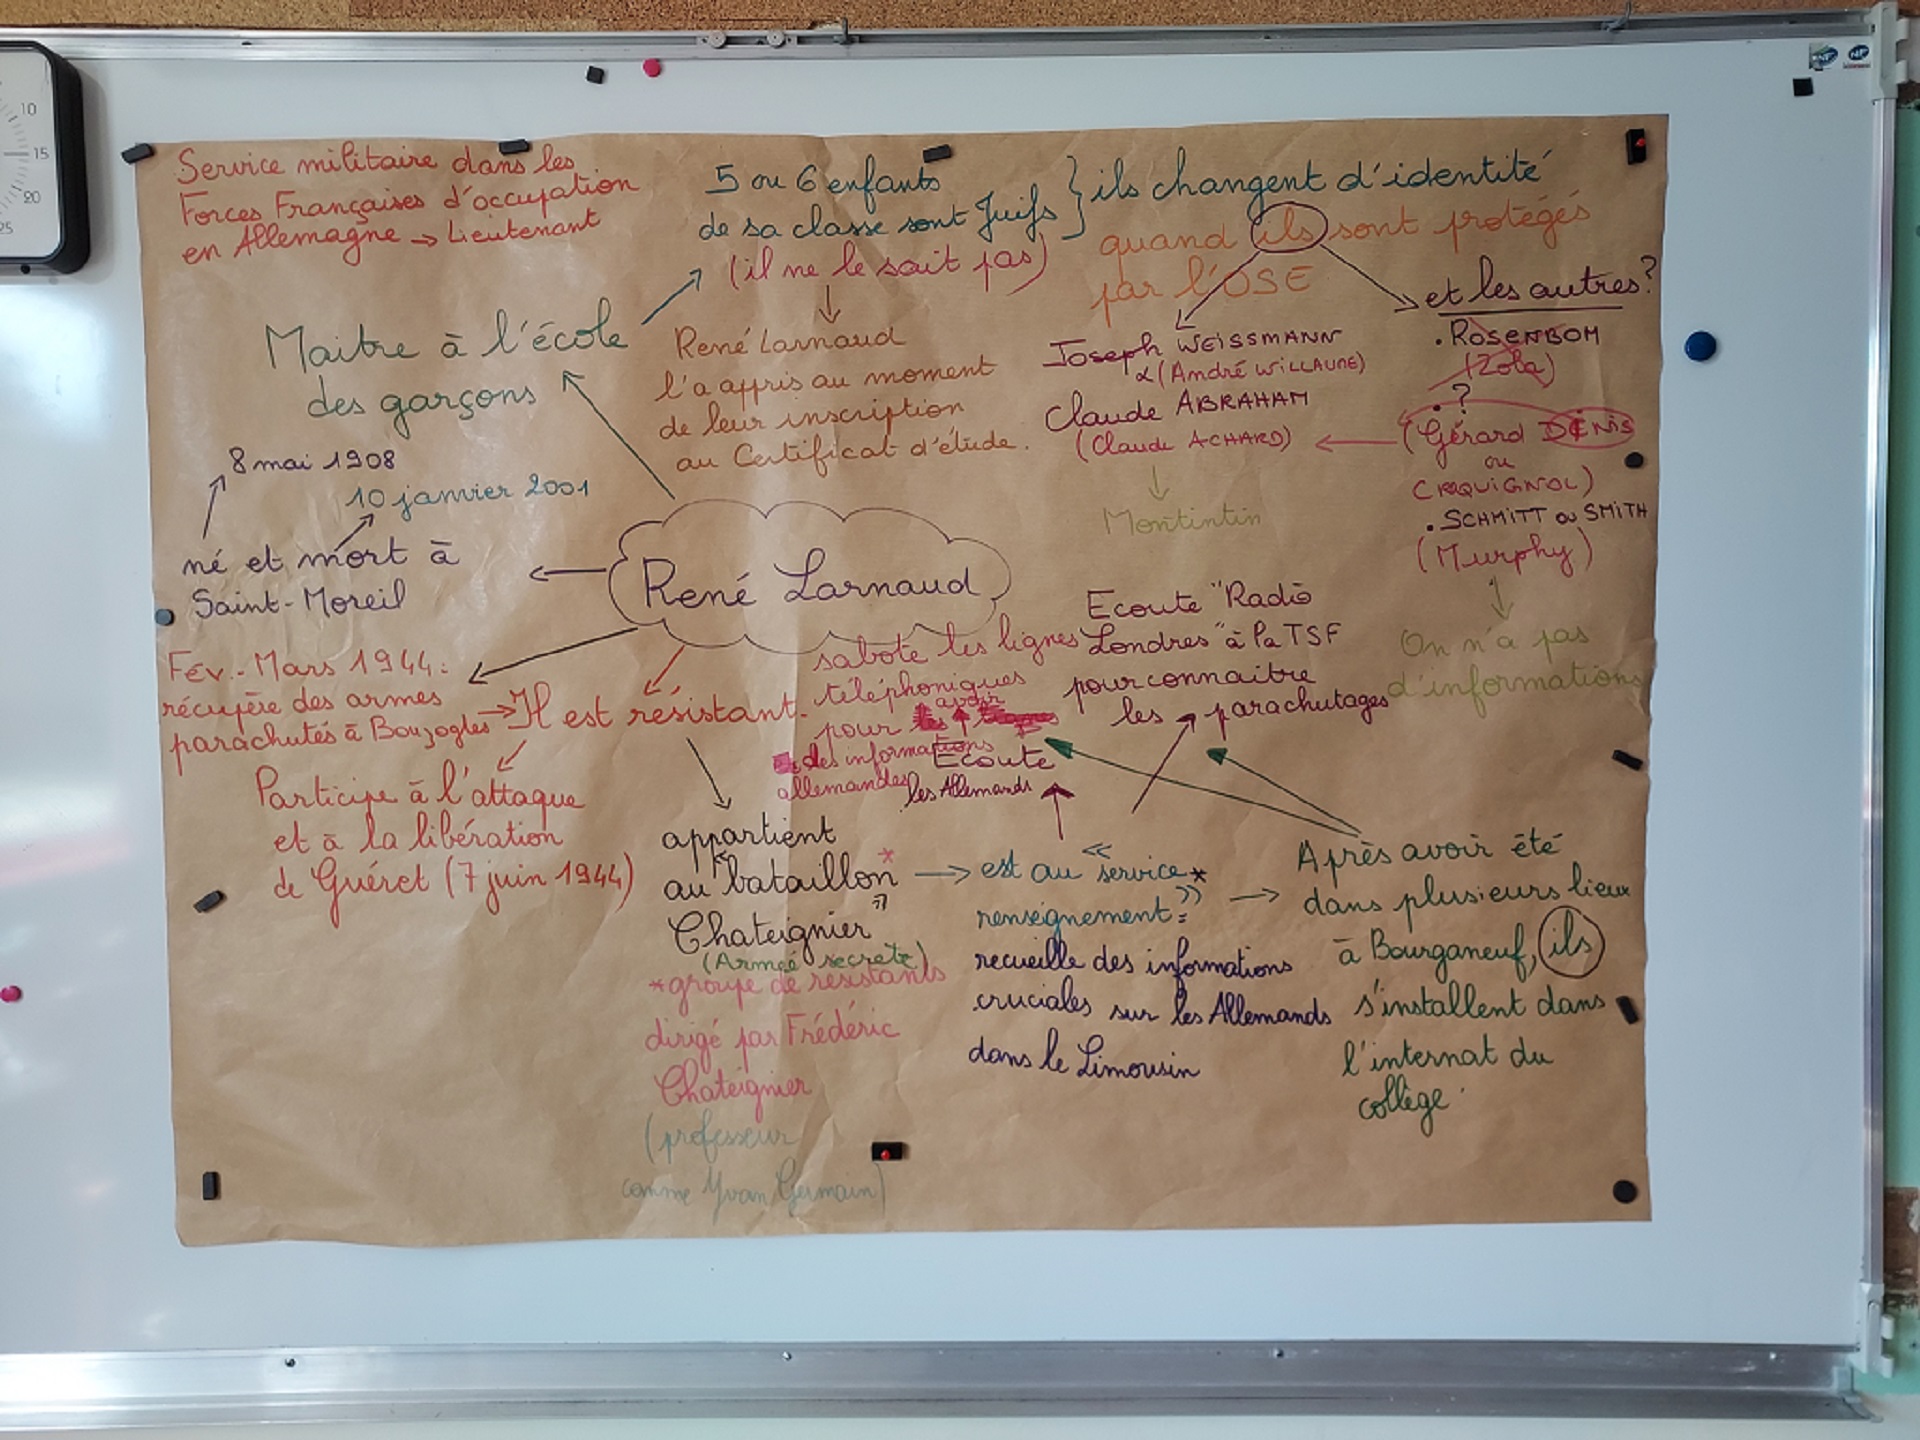 10
15
20
25
NF
Service militaire dans les
Forces Françaises d'occupation
en Allemagne → Lieutenant
5 ou 6 enfants
de sa classe sont Juifs
(il ne le sait pas)
} ils changent d'identité
quand ils sont protégés
par l'OSE
Maitre à l'école
des garçons
René Larnaud
l'a appris au moment
de leur inscription
au Certificat d'étude.
Joseph WEISSMANN
(André WILLAUME)
Claude ABRAHAM
(Claude ACHARD)
Montintin
et les autres?
. ROSENBOM
(Zola)
. ?
(Gérard DENIS
ou
CROQUIGNOL)
. SCHMITT ou SMITH
(Murphy)
On n'a pas
d'informations
8 mai 1908
10 janvier 2001
né et mort à
Saint-Moreil
René Larnaud
Fév.-Mars 1944:
récupère des armes
parachutés à Bouzogles
→ Il est résistant.
Participe à l'attaque
et à la libération
de Guéret (7 juin 1944)
sabote les lignes
téléphoniques
pour avoir
des informations
allemandes
Ecoute "Radio
Londres" à la TSF
pour connaitre
les parachutages
Ecoute
les Allemands
appartient
au "bataillon*
Chateignier"
(Armée secrète)
*groupe de résistants
dirigé par Frédéric
Chateignier
(professeur
comme Yvan Germain)
→ est au « service*
renseignement »:
recueille des informations
cruciales sur les Allemands
dans le Limousin
→ Après avoir été
dans plusieurs lieux
à Bourganeuf, ils
s'installent dans
l'internat du
collège.